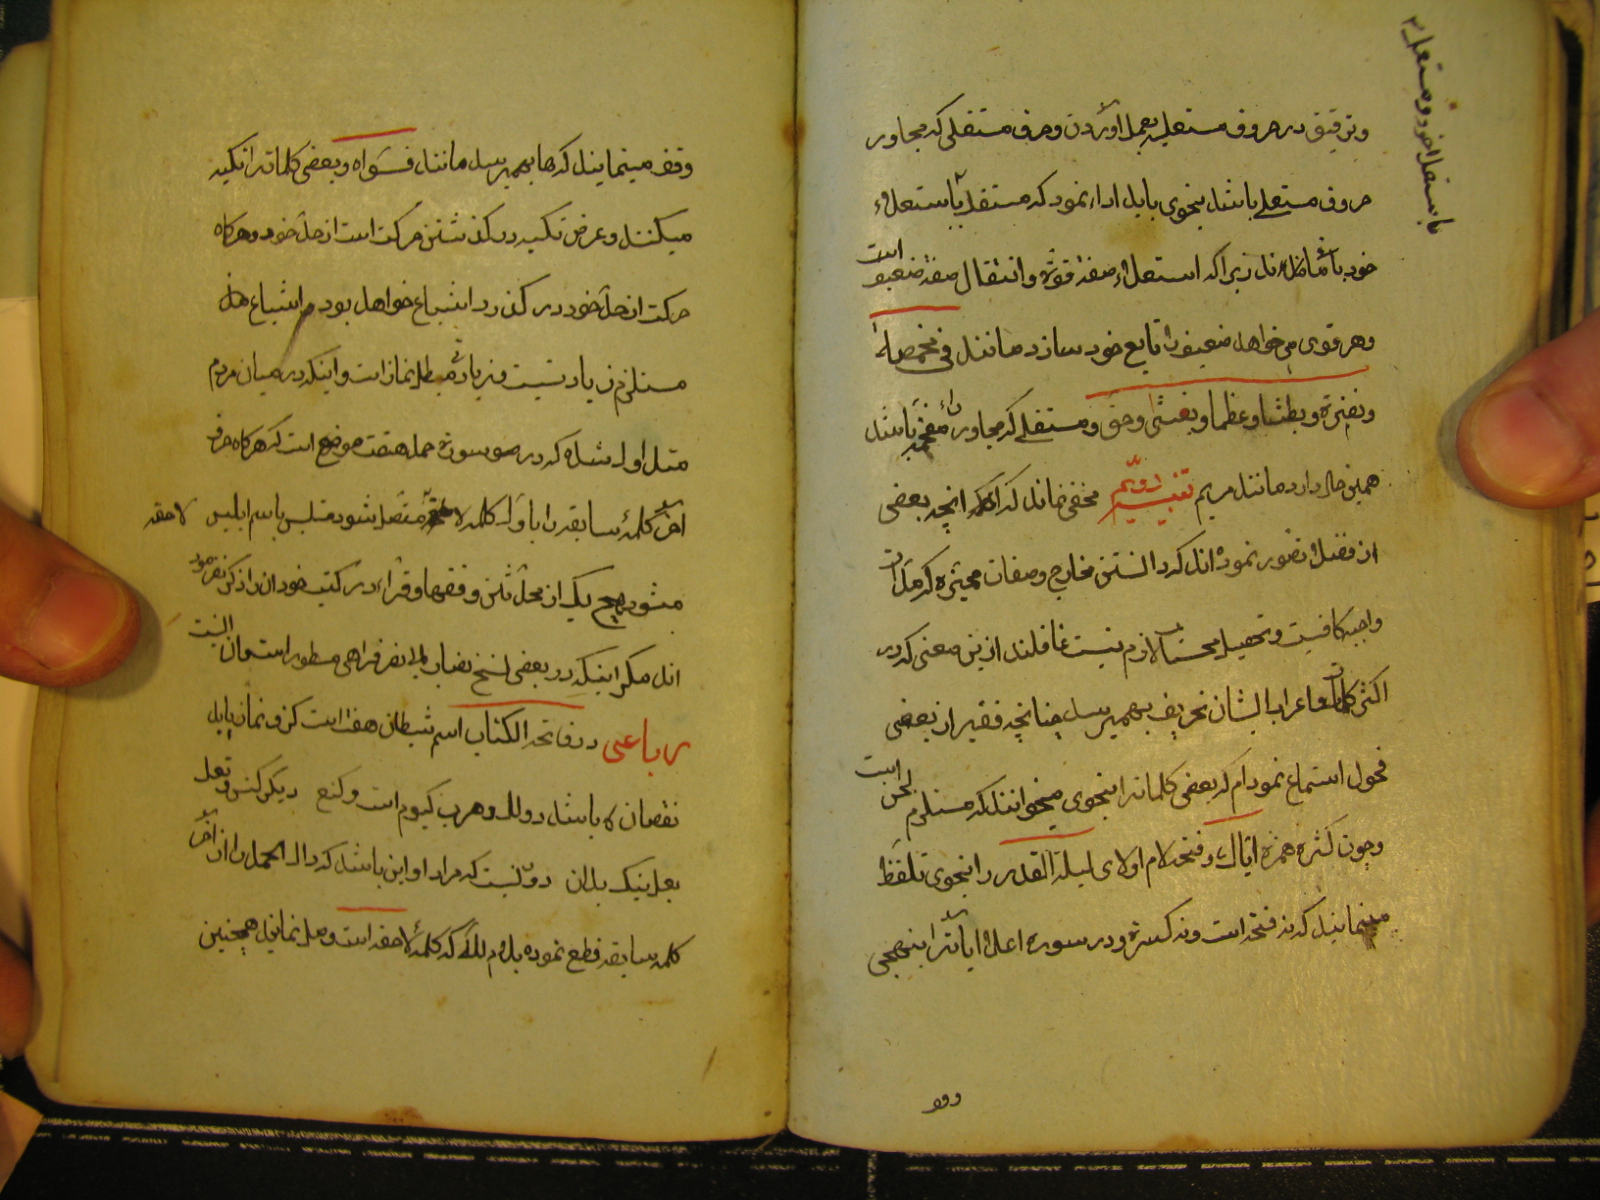 وترقیق در حروف مستعلیه بعمل آوردن و حرف مستفلی که مجاور
حروف مستعلی باشد بنحوی باید اداء نمود که مستفل باستعلاء
خود باقی ماند زیرا که استعلاء صفة قویه و انتقال صفة ضعیف است
وهر قوی می خواهد ضعیف را تابع خود سازد مانند فی مخمصة
ونضرة و بطشا و عظما و یغشی و حق و مستفلی که مجاور راء مفخم باشد
همین حال دارد مانند مریم تنبیه دویم مخفی نماند که اگر آنچه بعضی
از فضلا تصور نموده اند که دانستن مخارج و صفات ممیزه که مدات
واجبه کافیست و تحصیل محسنات لازم نیست غافلند ازین معنی که در
اکثر کلمات و اعراب ایشان تحریف بهم میرسد چنانچه فقیر از بعضی
فحول استماع نموده ام که بعضی کلمات را بنحوی میخوانند که مستلزم لحن است
وچون کثره همزه ایاک و فتحه لام اولای لیلة القدر را بنحوی تلفظ
مینمایند که نه فتحه است و نه کسره و در سوره اعلا آیات را بنهجی
وقف
باستعلاء خود و مستعلی
وقف مینمایند که ها بهم میرسد مانند فسواه و بعضی کلمات را تکیه
میکنند و غرض تکیه در گذشتن حرکت است از حد خود و هرگاه
حرکت از حد خود در گذرد اشباع خواهد بود و اشباع
مستلزم زیادتیست و زیاده مبطل نماز است و اینکه در میان مردم
متداول شده که در سوره حمد هفت موضع است که هرگاه حرف
آخر کلمهٔ سابقه را با اول کلمه لاحقه متصل شود متلبس باسم ابلیس لاحقه
میشود هیچ یک از محدثین و فقها و قراء در کتب خود آن را ذکر نفرموده
اند مگر اینکه در بعضی نسخ نصاب ابو نصر فراهی مسطور است و آن اینست
رباعی در فاتحة الکتاب اسم شیطان هفت است کزو نماز یابد
نقصان که باشد دولل و هرب کیوم است و کنع دیگر کنس و تعل
بعد بینک بدان دور نیست که مراد او این باشد که دال الحمد را از آخر
کلمه سابقه قطع نموده بلام لله که کلمهٔ لاحقه است وصل نمایند همچنین